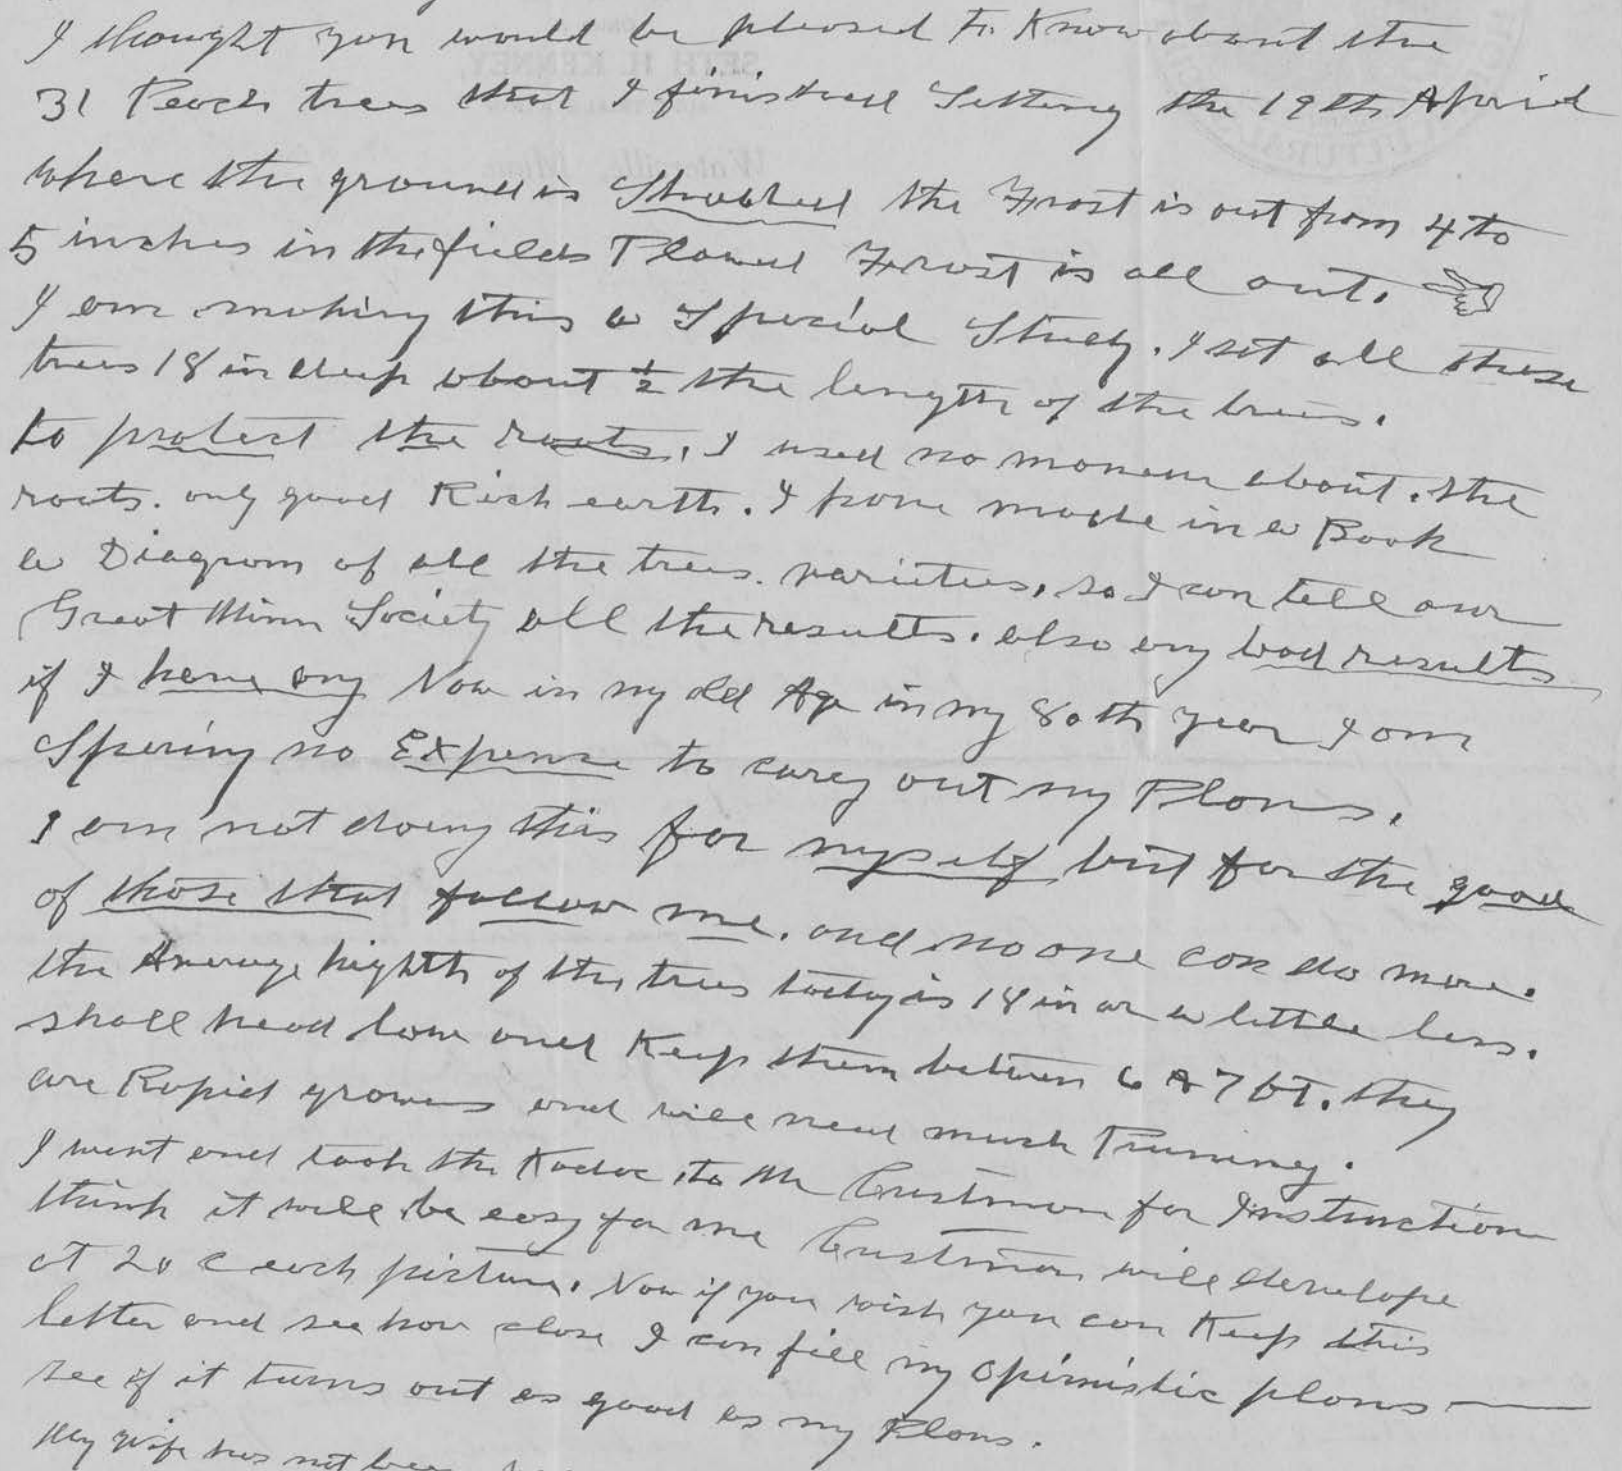 I thought you would be pleased to Know about the
31 Peach trees that I finished Setting the 19th April
where the ground is the Frost is out from 4 to
5 inches in the fields Plowed Frost is all out.
I am making this a Special Study. I set all these
trees 18 in deep about 1/2 the length of the trees.
to protect the roots. I used no manure about the
roots. only good Rich earth. I have made in a Book
a Diagram of all the trees. varieties. so I can tell our
Great Minn Society all the results. also any bad results
if I have any Now in my old Age in my 80th year I am
Sparing no Expense to carry out my Plans.
I am not doing this for myself but for the good
of those that follow me. and no one can do more.
the Average highth of the trees today is 18 in or a little less.
shall head low and Keep them between 6 & 7 ft. they
are Rapid growers and will need much Pruning.
I went and took the Kodac to Mr Cristman for Instruction
think it will be easy for me Cristman will develope
at 20 c each picture. Now if you wish you can Keep this
letter and see how close I can fill my opimistic plans
see if it turns out as good as my Plans.
My Wife has not been
SETH H. KENNEY,
Waterville, Minn.